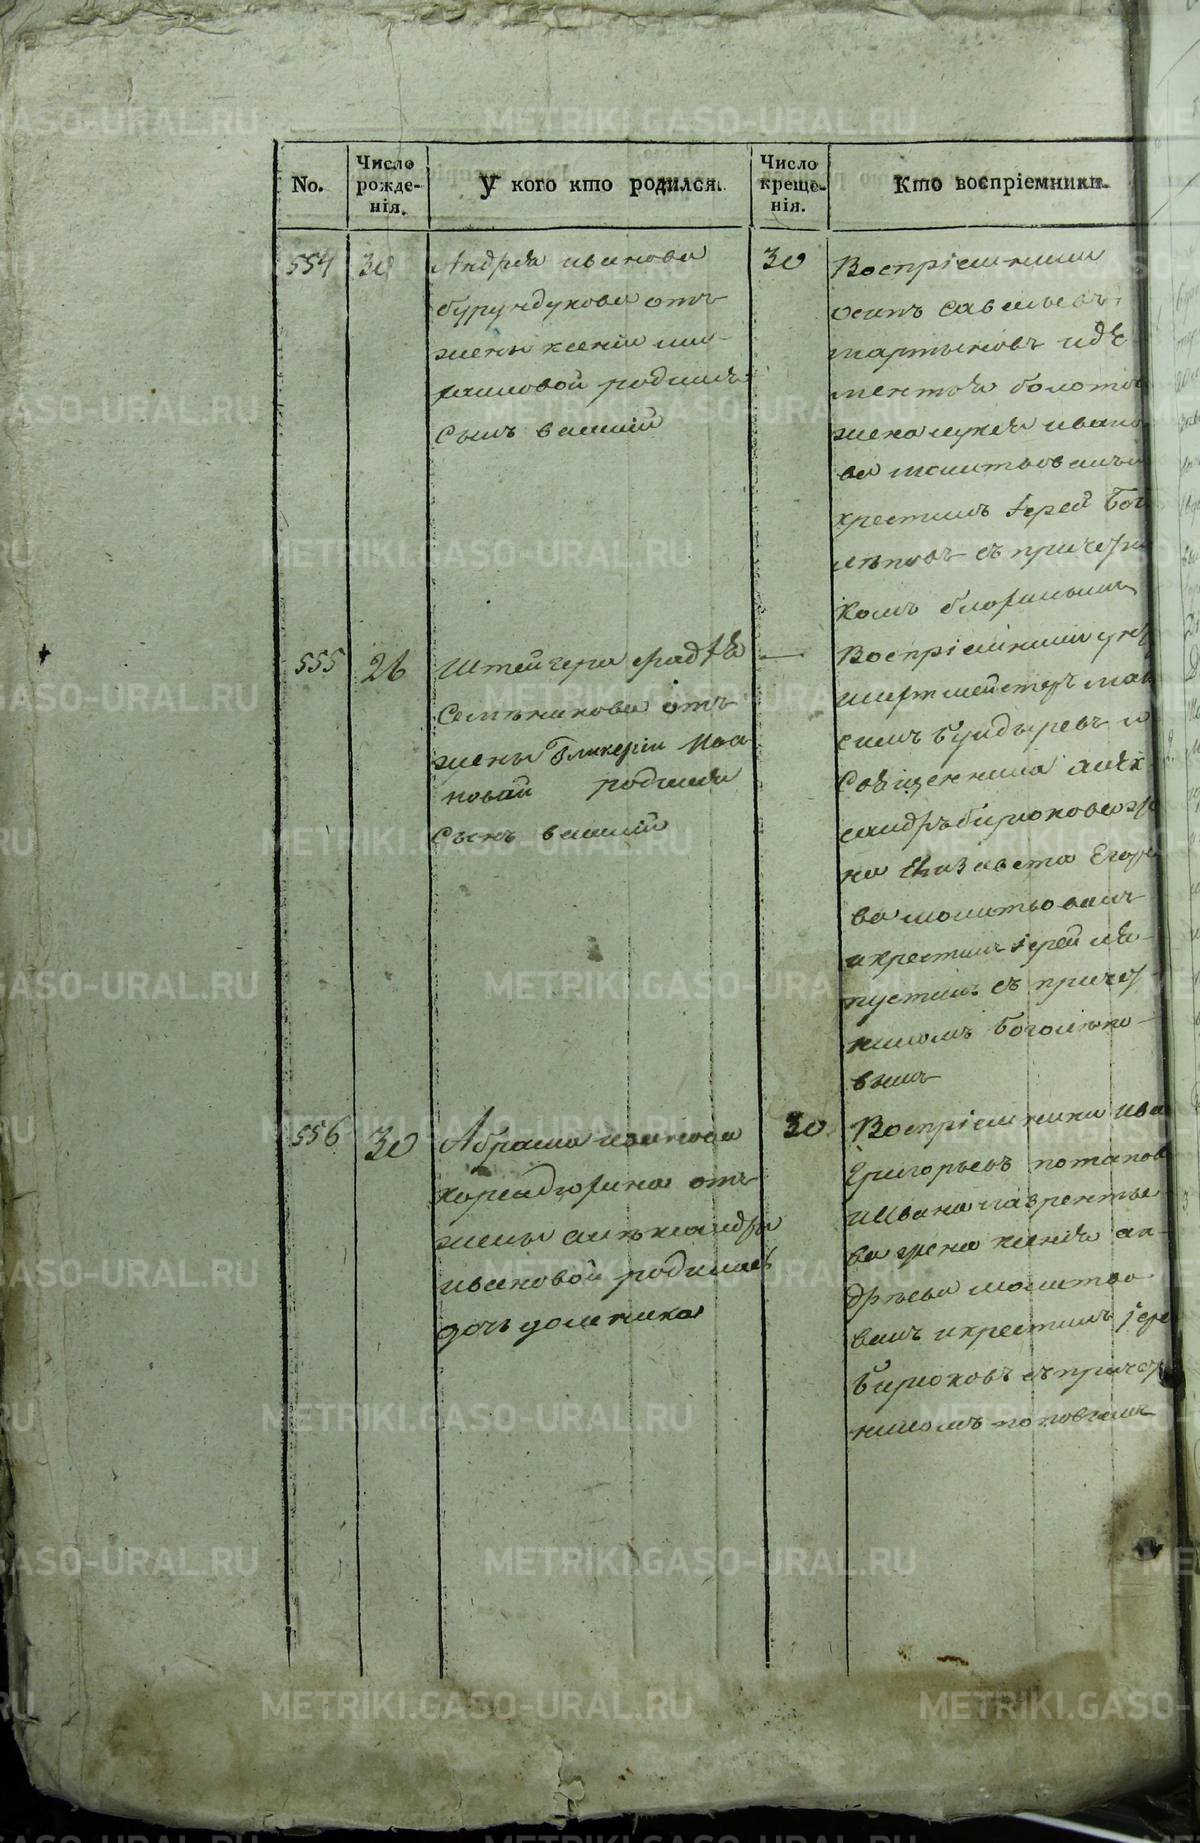 No.
Число рожде- нія.
У кого кто родился.
Число креще- нія.
Кто воспріемники.
554
30
Андрея иванова
бурундукова отъ
жены ксеніи
родился
сынъ василій
30
Воспріемники
осипъ савельевъ
мартыновъ идѣ
жена ива
ва молитвовалъ и
крестилъ Іерей Бог
лѣповъ съ причетн
комъ
555
26
Штейгера фадѣя
отъ
жены Гликеріи Ива
новай родился
сынъ василій
—
Воспріемники ун
шихтмейстеръ мак
симъ бундыревъ и
Священника алек
сандръ бирюкова же
на Елизавета Егоро
ва молитвовалъ
икрестилъ іерей ле
пустинъ съ причет
никомъ боголѣпо
вымъ
556
30
Абрама иванова
отъ
жены александры
ивановой родилась
дочь домника
30
Воспріемники ива
Григорьевъ потапов
и Ивана лаврентье
ва жена ксенія ан-
дрѣева молитво
валъ икрестилъ іере
Бирюковъ съ причет
никомъ поповымъ
METRIKI.GASO-URAL.RU